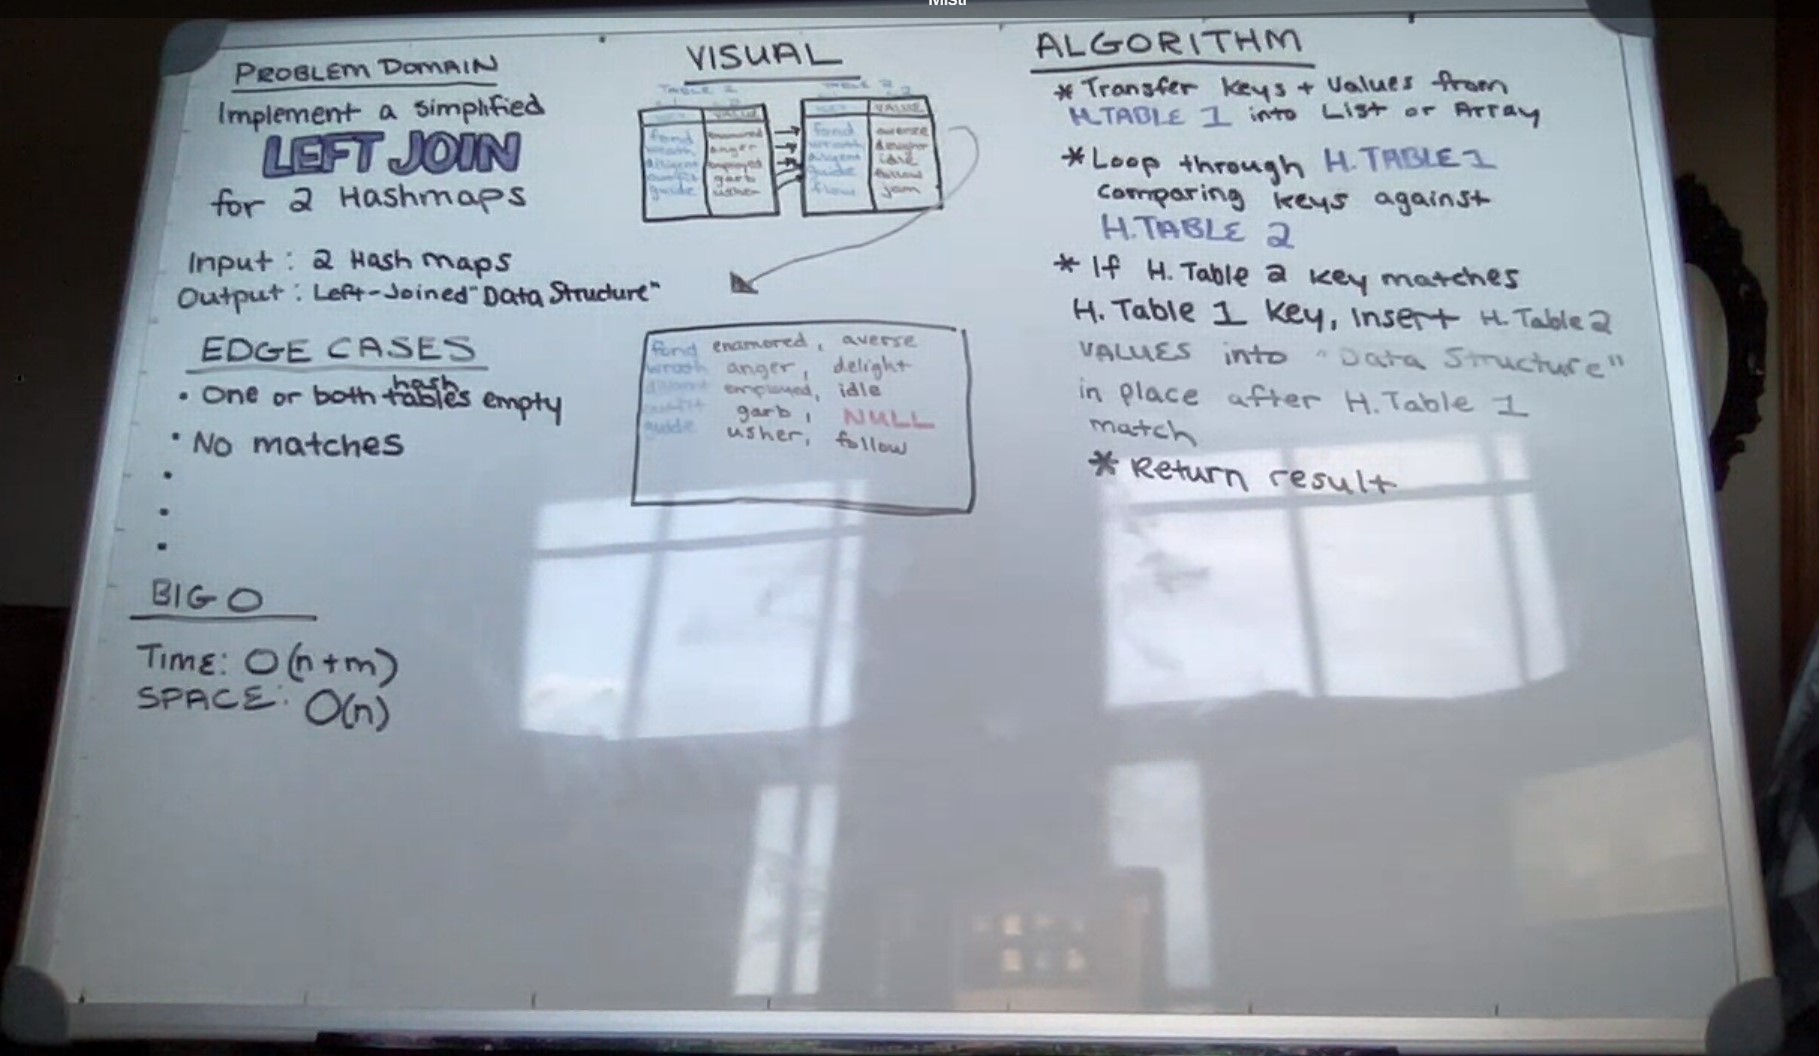 PROBLEM DOMAIN
Implement a simplified
LEFT JOIN
for 2 Hashmaps
Input: 2 Hash maps
Output: Left-Joined "Data Structure"
EDGE CASES
• One or both hash tables empty
• No matches
•
•
•
BIG O
TIME: O(n+m)
SPACE: O(n)
VISUAL
TABLE 1
VALUE
fond enamored
wrath anger
diligent employed
outfit garb
guide usher
TABLE 2
VALUE
fond averse
wrath delight
diligent idle
guide follow
flow jam
fond enamored, averse
wrath anger, delight
diligent employed, idle
outfit garb, NULL
guide usher, follow
ALGORITHM
* Transfer keys + values from
H.TABLE 1 into List or Array
* Loop through H.TABLE 1
comparing keys against
H.TABLE 2
* If H. Table 2 key matches
H. Table 1 key, insert H. Table 2
VALUES into "Data Structure"
in place after H.Table 1
match
* Return result